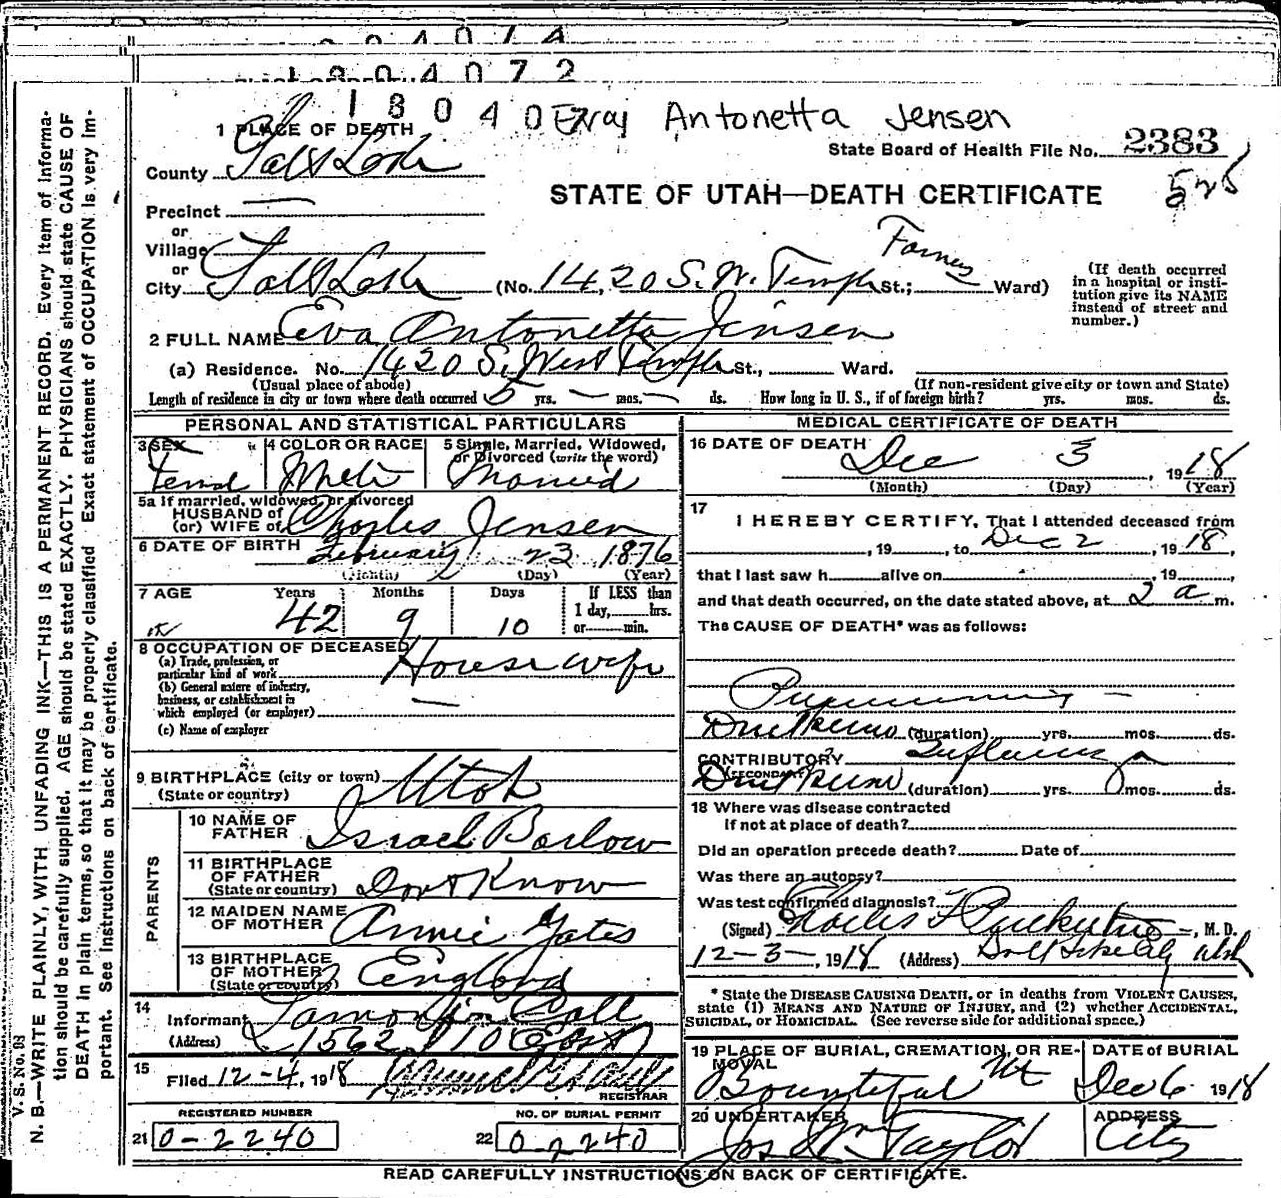 1 8 0 4 0 7 2
1 8 0 4 0 Antonetta Jensen
1 PLACE OF DEATH
State Board of Health File No. 2383
County Salt Lake
STATE OF UTAH—DEATH CERTIFICATE
525
Precinct —
or
Village
or
City Salt Lake (No. 1420 S. W. Temple St.; Ward)
(If death occurred in a hospital or institution give its NAME instead of street and number.)
2 FULL NAME Eva Antonetta Jensen
(a) Residence. No. 1420 S. West Temple St., Ward.
(Usual place of abode) (If non-resident give city or town and State)
Length of residence in city or town where death occurred 5 yrs. — mos. — ds. How long in U. S., if of foreign birth? yrs. mos. ds.
PERSONAL AND STATISTICAL PARTICULARS
3 SEX 4 COLOR OR RACE 5 Single, Married, Widowed,
or Divorced (write the word)
Female White Married
5a If married, widowed, or divorced
HUSBAND of
(or) WIFE of Charles Jensen
6 DATE OF BIRTH February 23 1876
(Month) (Day) (Year)
7 AGE Years Months Days If LESS than
1 day, hrs.
or min.
42 9 10
8 OCCUPATION OF DECEASED
(a) Trade, profession, or
particular kind of work Housewife
(b) General nature of industry,
business, or establishment in
which employed (or employer) —
(c) Name of employer
9 BIRTHPLACE (city or town) Utah
(State or country)
PARENTS
10 NAME OF
FATHER Israel Barlow
11 BIRTHPLACE
OF FATHER
(State or country) Dont Know
12 MAIDEN NAME
OF MOTHER Annie Yates
13 BIRTHPLACE
OF MOTHER
(State or country) England
14
Informant Lamoni Call
(Address) 1562 So 10 East
15
Filed 12-4, 1918
REGISTRAR
REGISTERED NUMBER NO. OF BURIAL PERMIT
21 0-2240 22 0-2240
MEDICAL CERTIFICATE OF DEATH
16 DATE OF DEATH
Dec 3, 1918
(Month) (Day) (Year)
17
I HEREBY CERTIFY, That I attended deceased from
, 19 , to Dec 2, 1918,
that I last saw h alive on , 19 ,
and that death occurred, on the date stated above, at 2 a m.
The CAUSE OF DEATH* was as follows:
Pneumonia —
Dont know (duration) yrs. mos. ds.
CONTRIBUTORY Influenza
(SECONDARY)
Dont know (duration) yrs. mos. ds.
18 Where was disease contracted
if not at place of death?
Did an operation precede death? Date of
Was there an autopsy?
Was test confirmed diagnosis?
(Signed) Charles F, M. D.
12-3-, 1918 (Address) Salt Lake City Utah
* State the DISEASE CAUSING DEATH, or in deaths from VIOLENT CAUSES,
state (1) MEANS AND NATURE OF INJURY, and (2) whether ACCIDENTAL,
SUICIDAL, or HOMICIDAL. (See reverse side for additional space.)
19 PLACE OF BURIAL, CREMATION, OR REMOVAL DATE of BURIAL
Bountiful Ut Dec 6 1918
20 UNDERTAKER ADDRESS
Jos Wm Taylor City
READ CAREFULLY INSTRUCTIONS ON BACK OF CERTIFICATE.
V. S. No. 98
N. B.—WRITE PLAINLY, WITH UNFADING INK—THIS IS A PERMANENT RECORD. Every item of informa-
tion should be carefully supplied. AGE should be stated EXACTLY. PHYSICIANS should state CAUSE OF
DEATH in plain terms, so that it may be properly classified. Exact statement of OCCUPATION is very im-
portant. See instructions on back of certificate.